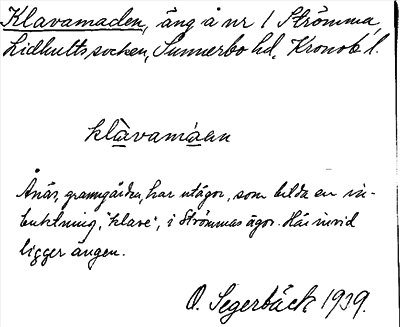 Klavamaden, äng å nr 1 Strömma,
Lidhults socken, Sunnerbo hd, Kronob. l.
klàvamáan
Ånäs, granngården, har utägor, som bilda en in-
buktning, "klave", i Strömmas ägor. Här invid
ligger ängen.
O. Segerbäck 1939.